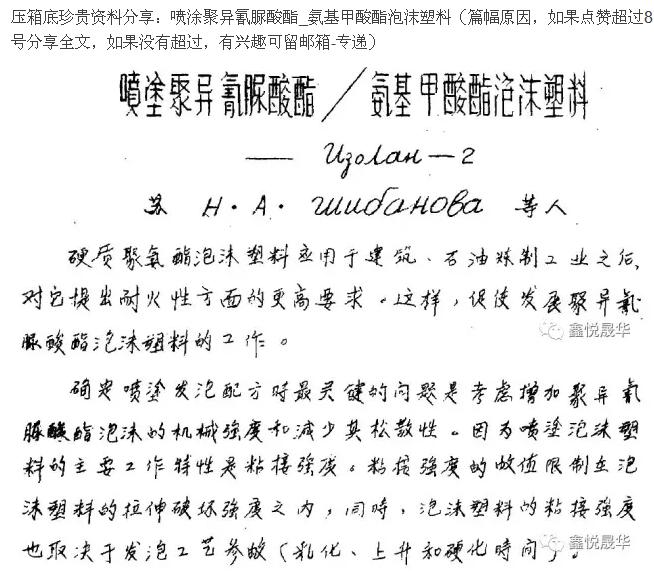 压箱底珍贵资料分享：喷涂聚异氰脲酸酯_氨基甲酸酯泡沫塑料（篇幅原因，如果点赞超过8
号分享全文，如果没有超过，有兴趣可留邮箱-专递）
喷塗聚异氰脲酸酯／氨基甲酸酯泡沫塑料
—— Изолан－2
苏 Н·А·Шибанова 等人
硬质聚氨酯泡沫塑料应用于建筑、石油炼制工业之后，
对它提出耐火性方面的更高要求。这样，促使发展聚异氰
脲酸酯泡沫塑料的工作。
鑫悦晟华
确定喷塗发泡配方时最关键的问题是考虑增加聚异氰
脲酸酯泡沫的机械强度和减少其松散性。因为喷塗泡沫塑
料的主要工作特性是粘接强度。粘接强度的数值限制在泡
沫塑料的拉伸破坏强度之内，同时，泡沫塑料的粘接强度
也取决于发泡工艺参数（乳化、上升和硬化时间）。
鑫悦晟华